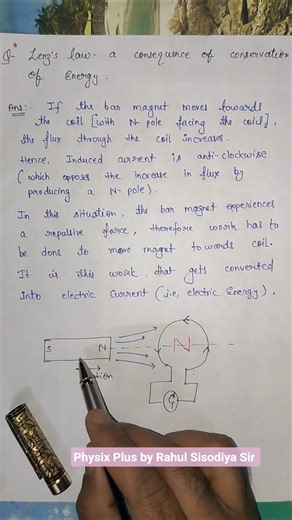 Q-* Lenz's law- a consequence of conservation
of Energy.
Ans:- If the bar magnet moves towards
the coil [with N-pole facing the coil],
the flux through the coil increases.
Hence, Induced current is anti-clockwise
(which opposes the increase in flux by
producing a N-pole).
In this situation, the bar magnet experiences
a repulsive force, therefore work has to
be done to move magnet towards coil.
It is this work that gets converted
into electric current (i.e, electric Energy).
S N
N
G
Physix Plus by Rahul Sisodiya Sir